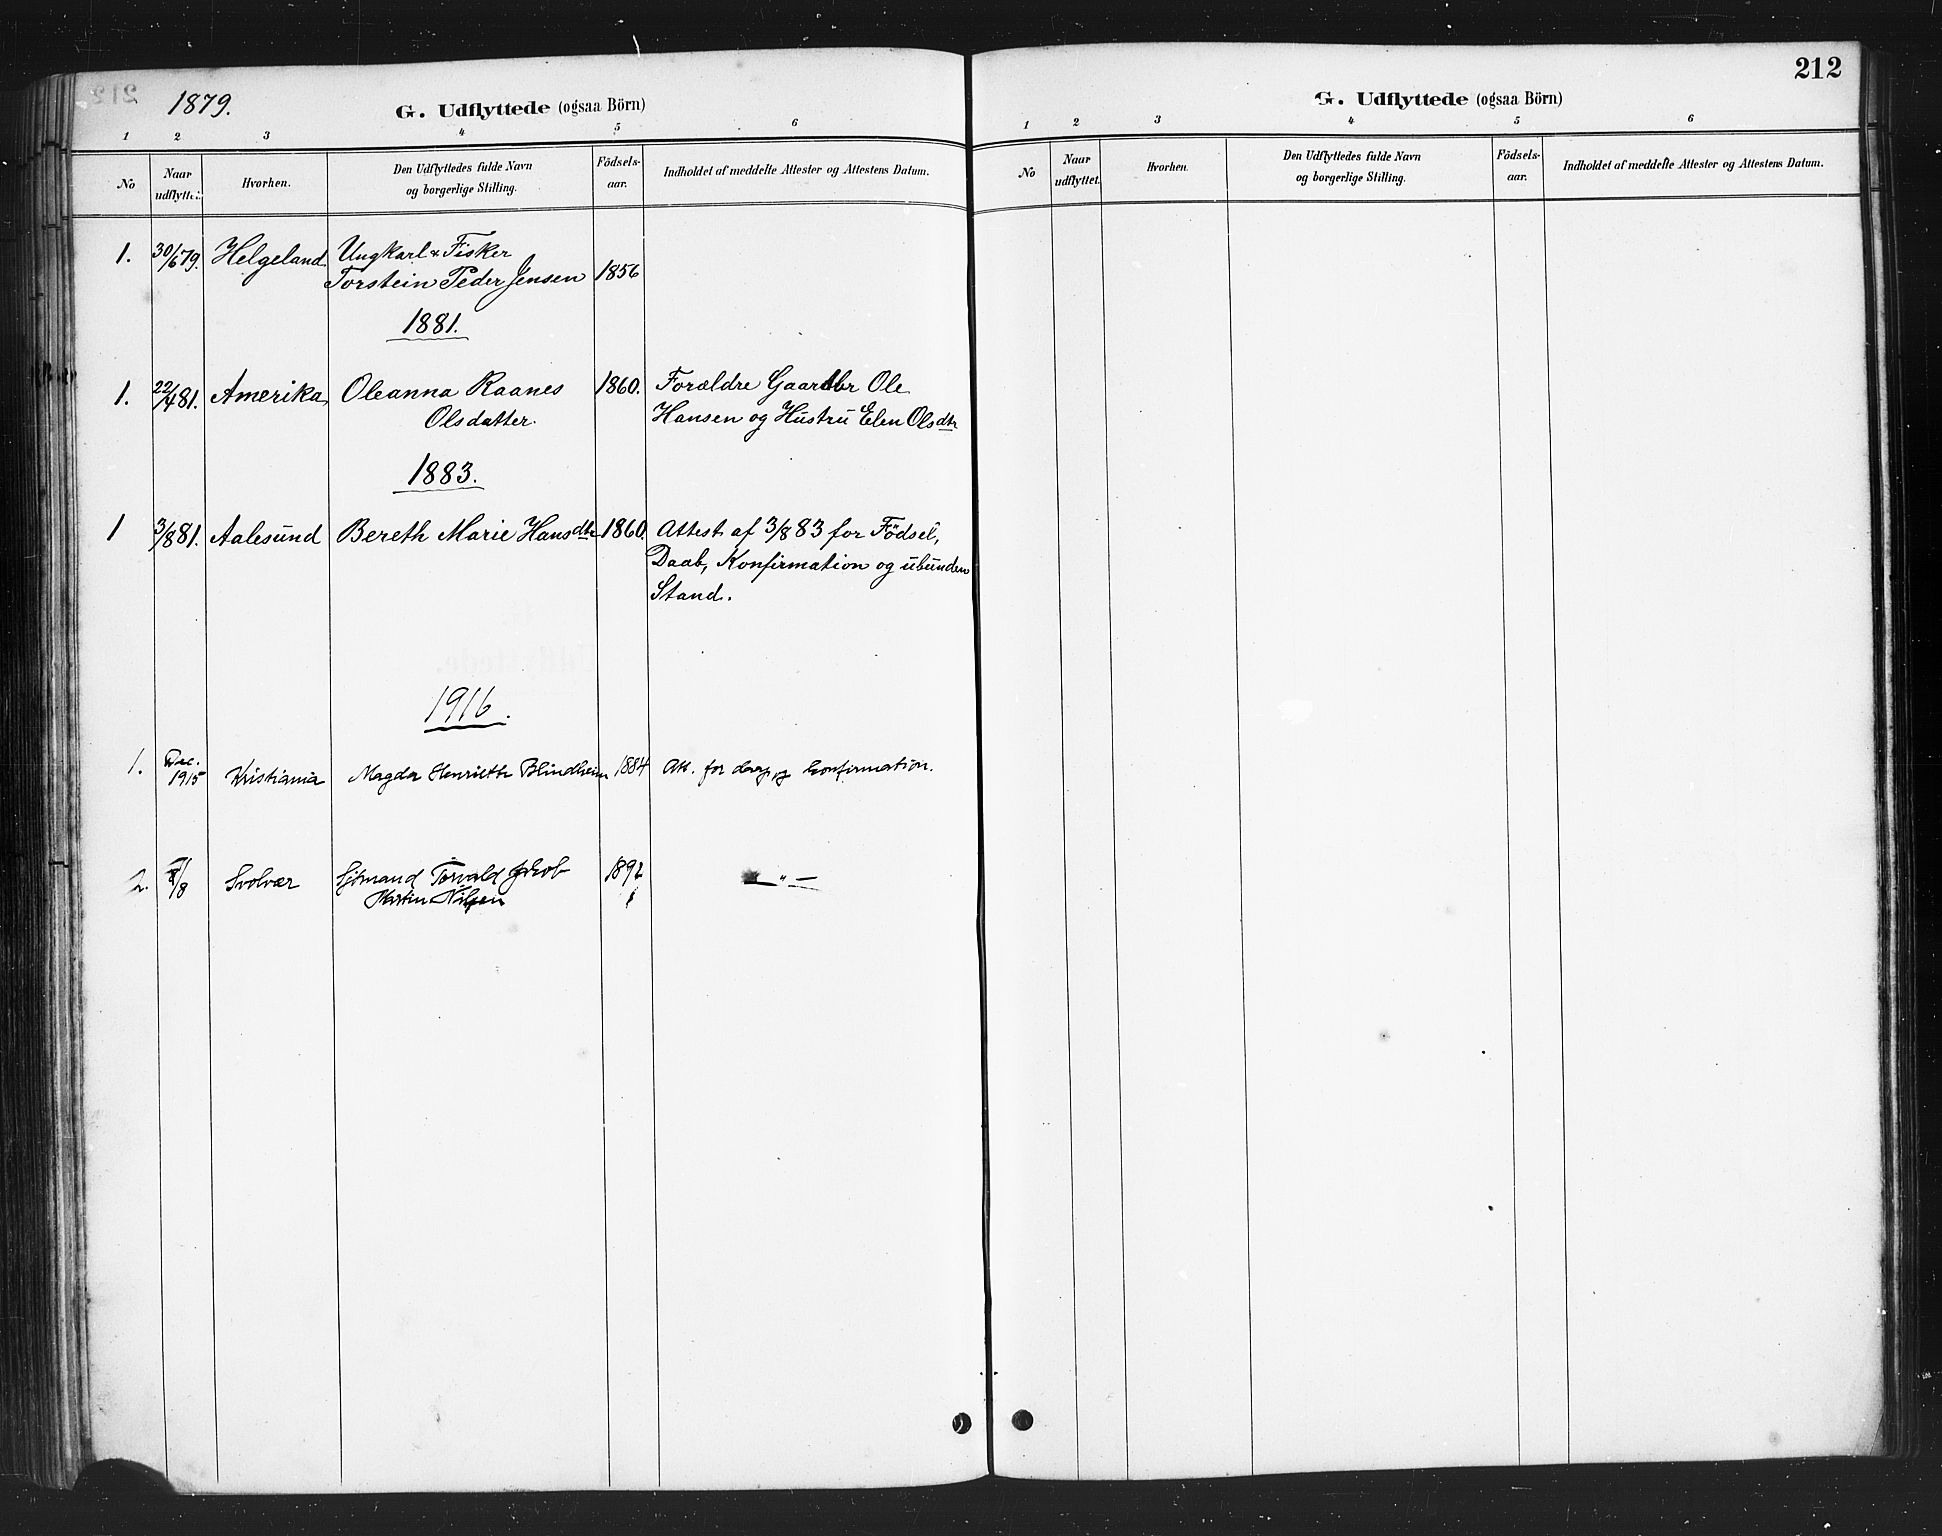 1879.
G. Udflyttede (ogsaa Börn)
1 2 3 4 5 6
No
Naar udflyttet.
Hvorhen.
Den Udflyttedes fulde Navn
og borgerlige Stilling.
Födsels-
aar.
Indholdet af meddelte Attester og Attestens Datum.
1. 30/6 79. Helgeland Ungkarl & Fisker
Torstein Peder Jensen 1856
1881.
1. 22/4 81. Amerika Oleanna Raanes 1860. Forældre Gaardbr Ole
Olsdatter. Hansen og Hustru Elen Olsdtr
1883.
1 3/8 81. Aalesund Bereth Marie Hansdtr 1860. Attest af 3/8 83 for Födsel,
Daab, Konfirmation og ubunden
Stand.
1916.
1. Dec. 1915 Kristiania Magda Henriette Blindheim 1884 Att. for daab og konfirmation.
2. /8 Svolvær Sjömand Torvald Jakob 1892 — " —
Martin Nilsen
212
G. Udflyttede (ogsaa Börn)
1 2 3 4 5 6
No
Naar
udflyttet.
Hvorhen.
Den Udflyttedes fulde Navn
og borgerlige Stilling.
Födsels-
aar.
Indholdet af meddelte Attester og Attestens Datum.